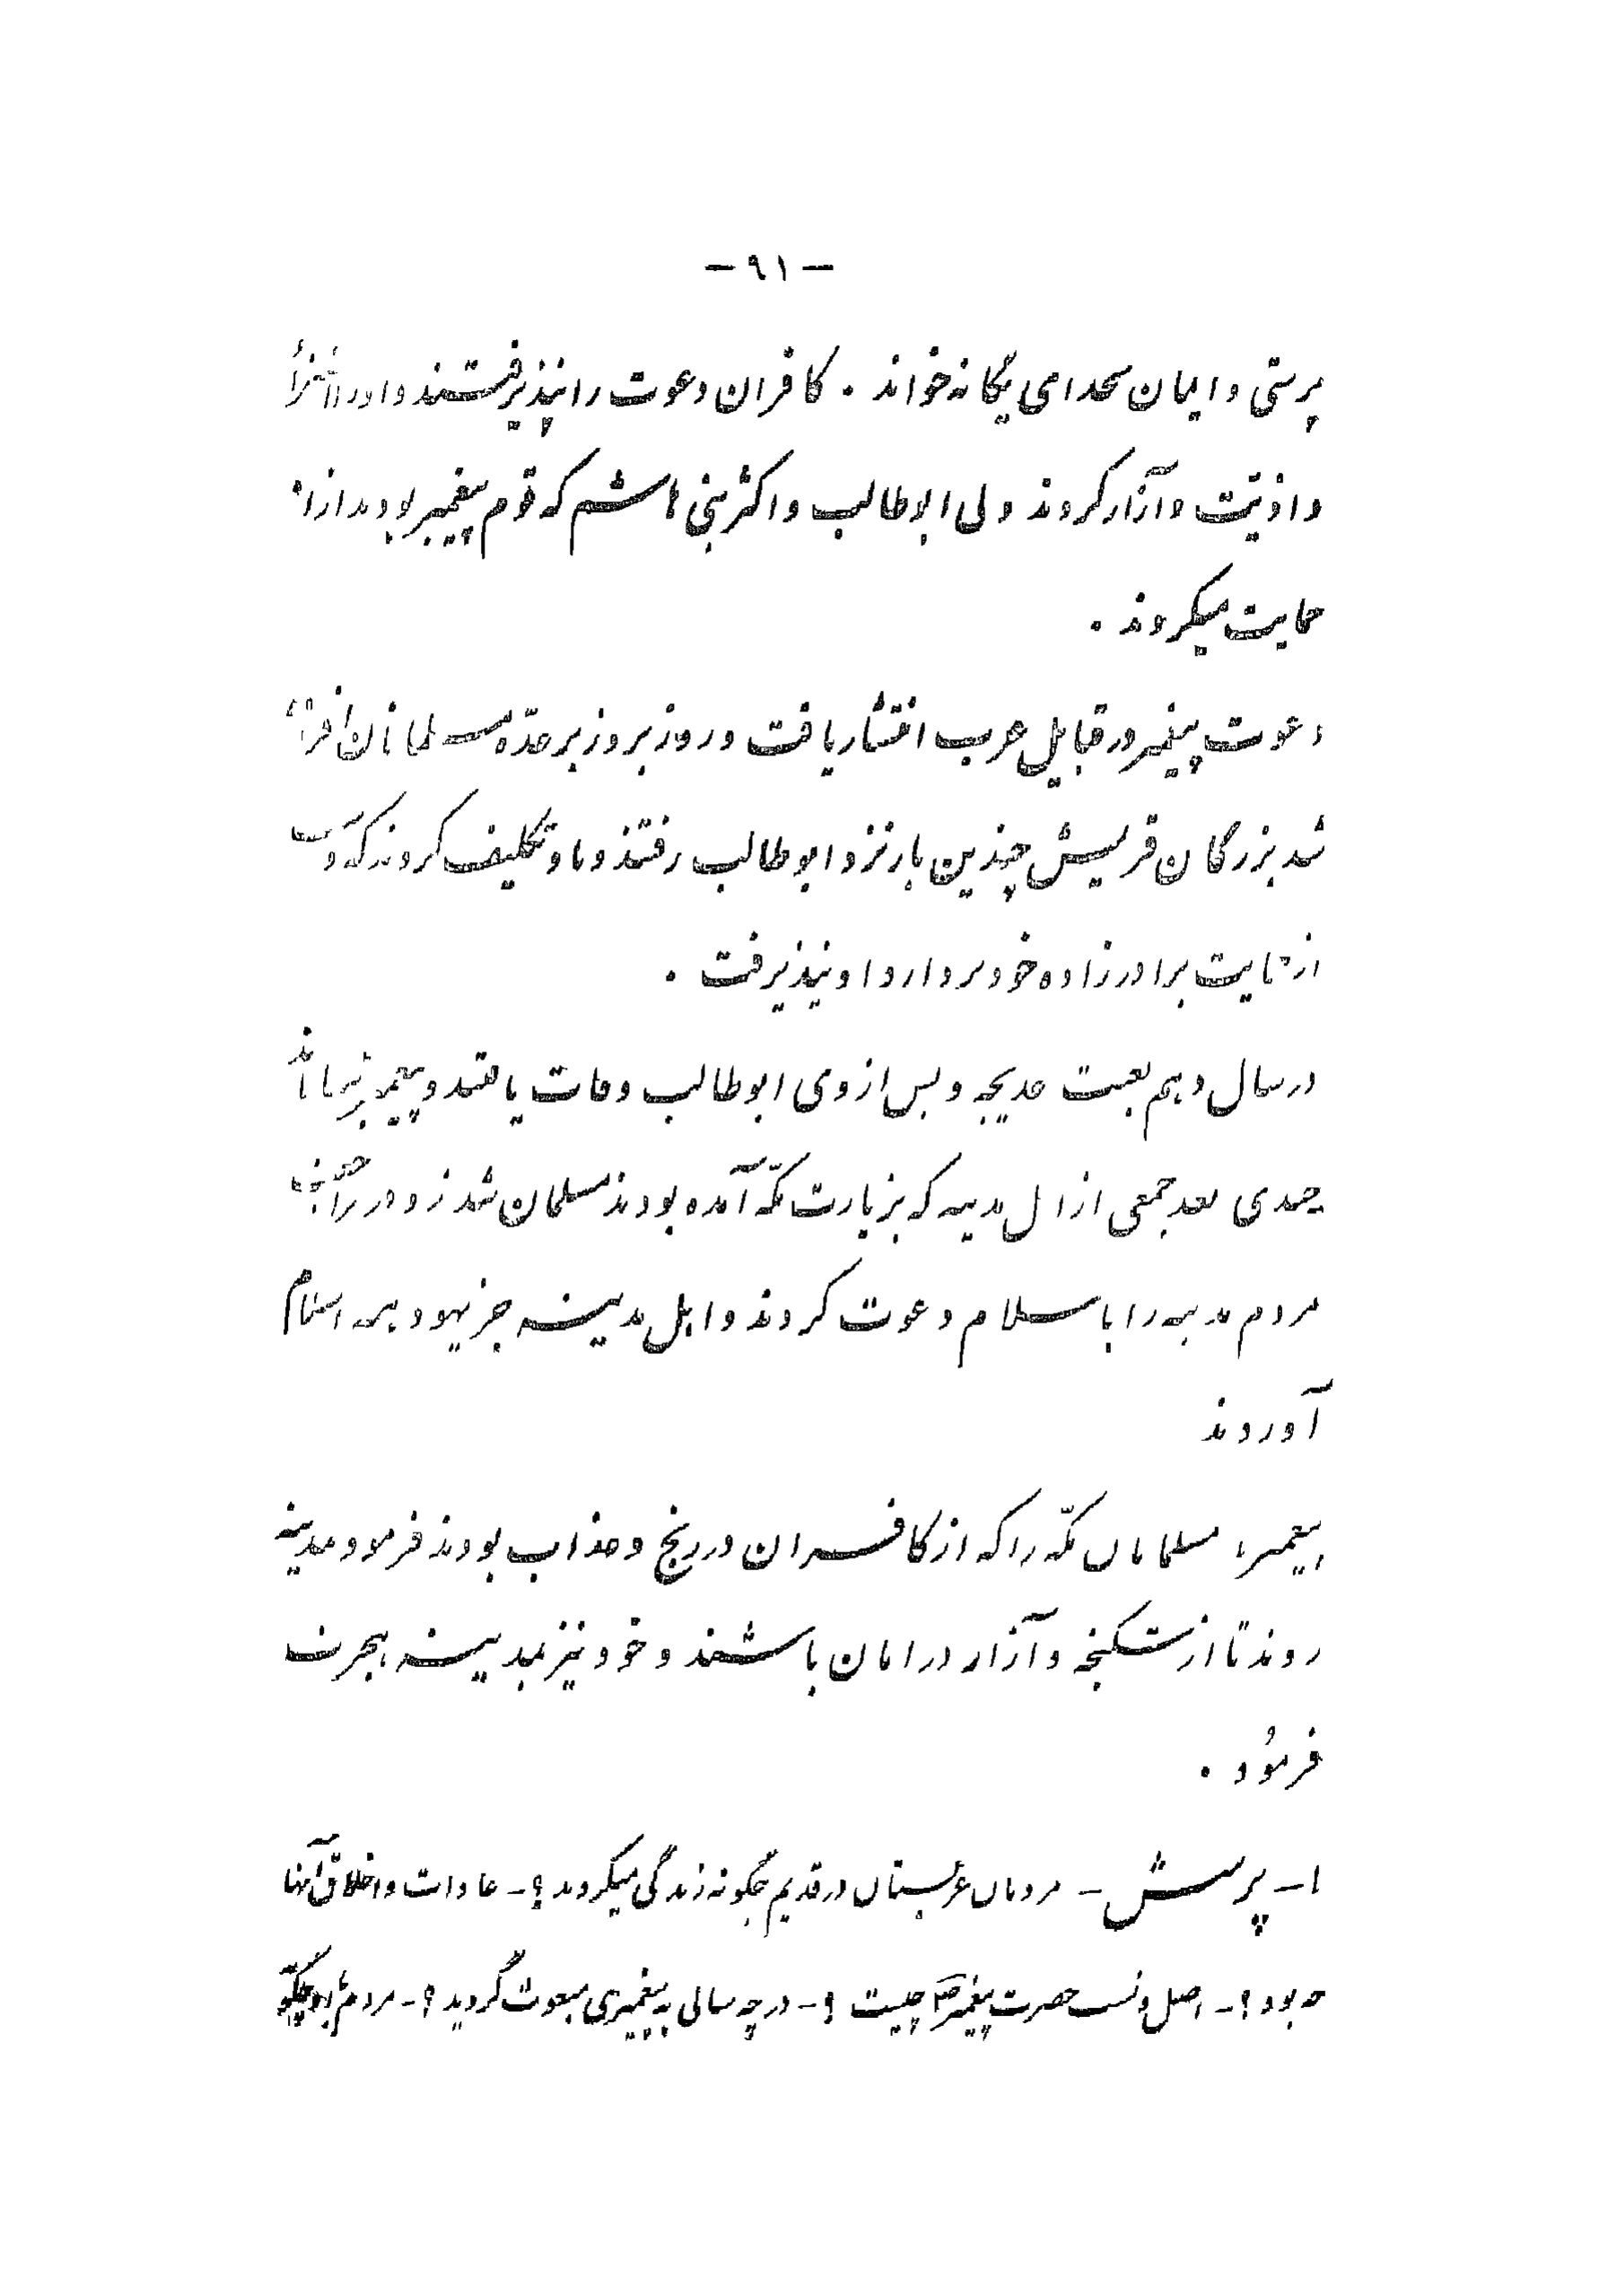 — ۹۱ —
پرستی و ایمان بخدای یگانه خواند . کافران دعوت را نپذیرفتند و او را
و اذیّت و آزار کردند ولی ابوطالب و اکثر بنی هاشم که قوم پیغمبر بودند از او
حمایت میکردند .
دعوت پیغمبر در قبایل عرب انتشار یافت و روز بروز بر عدّه مسلمانان افزوده
شد بزرگان قریش چندین بار نزد ابوطالب رفتند و باو تکلیف کردند که دست
از حمایت برادرزاده خود بردارد و او نپذیرفت .
در سال دهم بعثت خدیجه و پس از وی ابوطالب وفات یافتند و پیغمبر
چندی بعد جمعی از اهل مدینه که بزیارت مکّه آمده بودند مسلمان شدند و در
مردم مدینه را باسلام دعوت کردند و اهل مدینه جز یهود همه اسلام
آوردند
پیغمبر، مسلمانان مکّه را که از کافران در رنج و عذاب بودند فرمود بمدینه
روند تا از شکنجه و آزار در امان باشند و خود نیز بمدینه هجرت
فرمود .
۱- پرسش - مردمان عربستان در قدیم چگونه زندگی میکردند ؟- عادات و اخلاق آنها
چه بود ؟- اصل و نسب حضرت پیغمبر ص چیست ؟- در چه سالی به پیغمبری مبعوث گردید ؟- مردم را